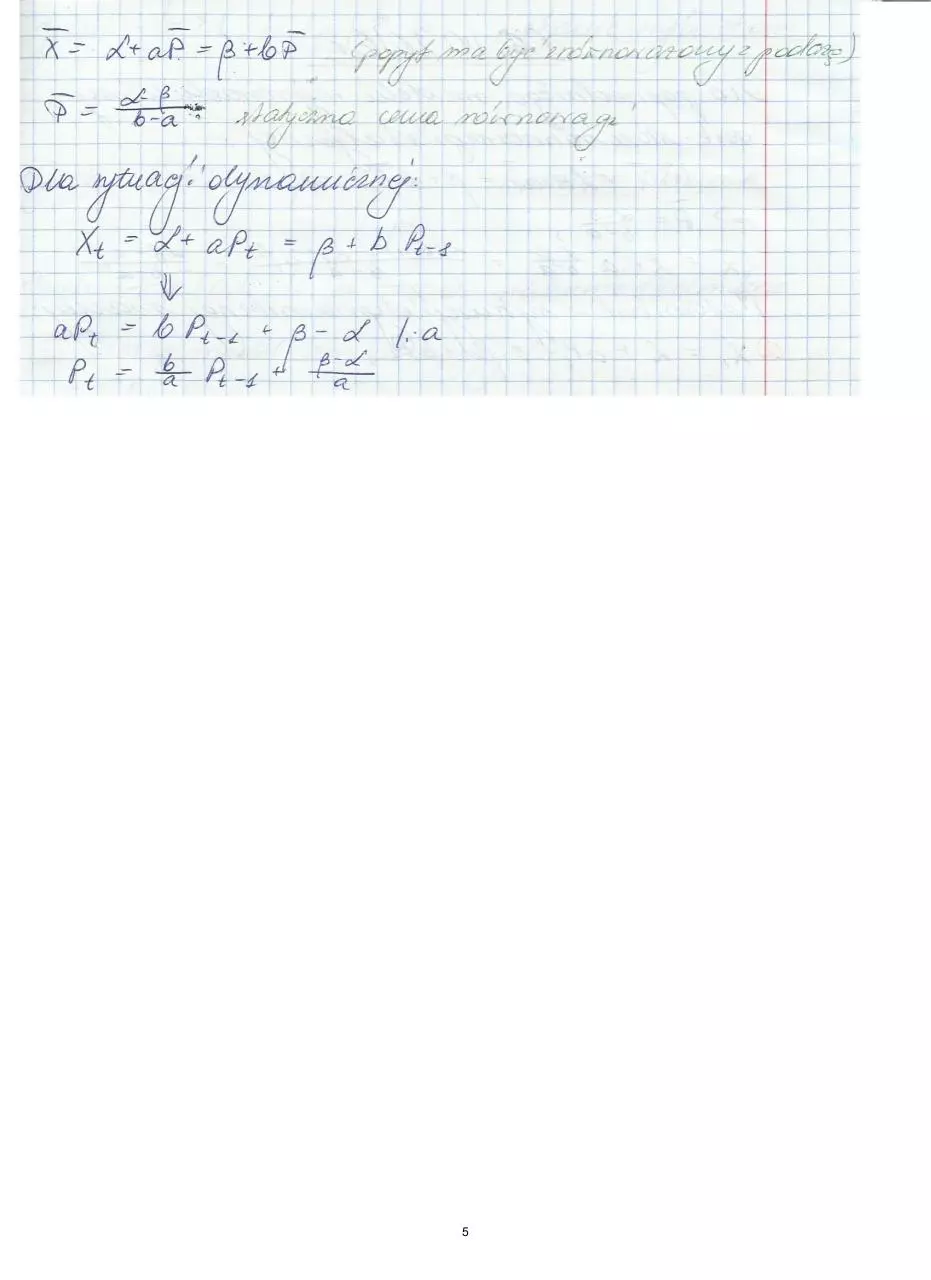 X̄ = α + aP̄ = β + bP̄ (popyt ma być zrównoważony z podażą)
P̄ = (α-β)/(b-a) : statyczna cena równowagi
Dla sytuacji dynamicznej:
Xt = α + aPt = β + b Pt-1
⇓
aPt = b Pt-1 + β - α /:a
Pt = b/a Pt-1 + (β-α)/a
5